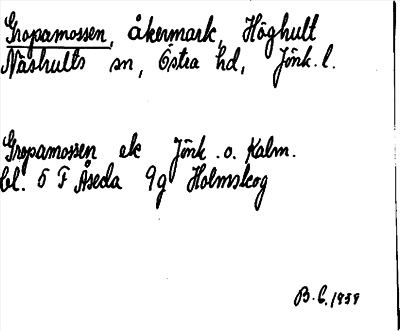 Gropamossen, åkermark, Höghult
Näshults sn, Östra hd, Jönk. l.
Gropamossen ek Jönk. o. Kalm.
bl. 5 F Åseda 9g Holmskog
B.C. 1959